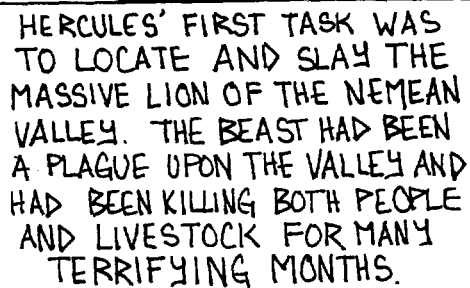 HERCULES' FIRST TASK WAS
TO LOCATE AND SLAY THE
MASSIVE LION OF THE NEMEAN
VALLEY. THE BEAST HAD BEEN
A PLAGUE UPON THE VALLEY AND
HAD BEEN KILLING BOTH PEOPLE
AND LIVESTOCK FOR MANY
TERRIFYING MONTHS.